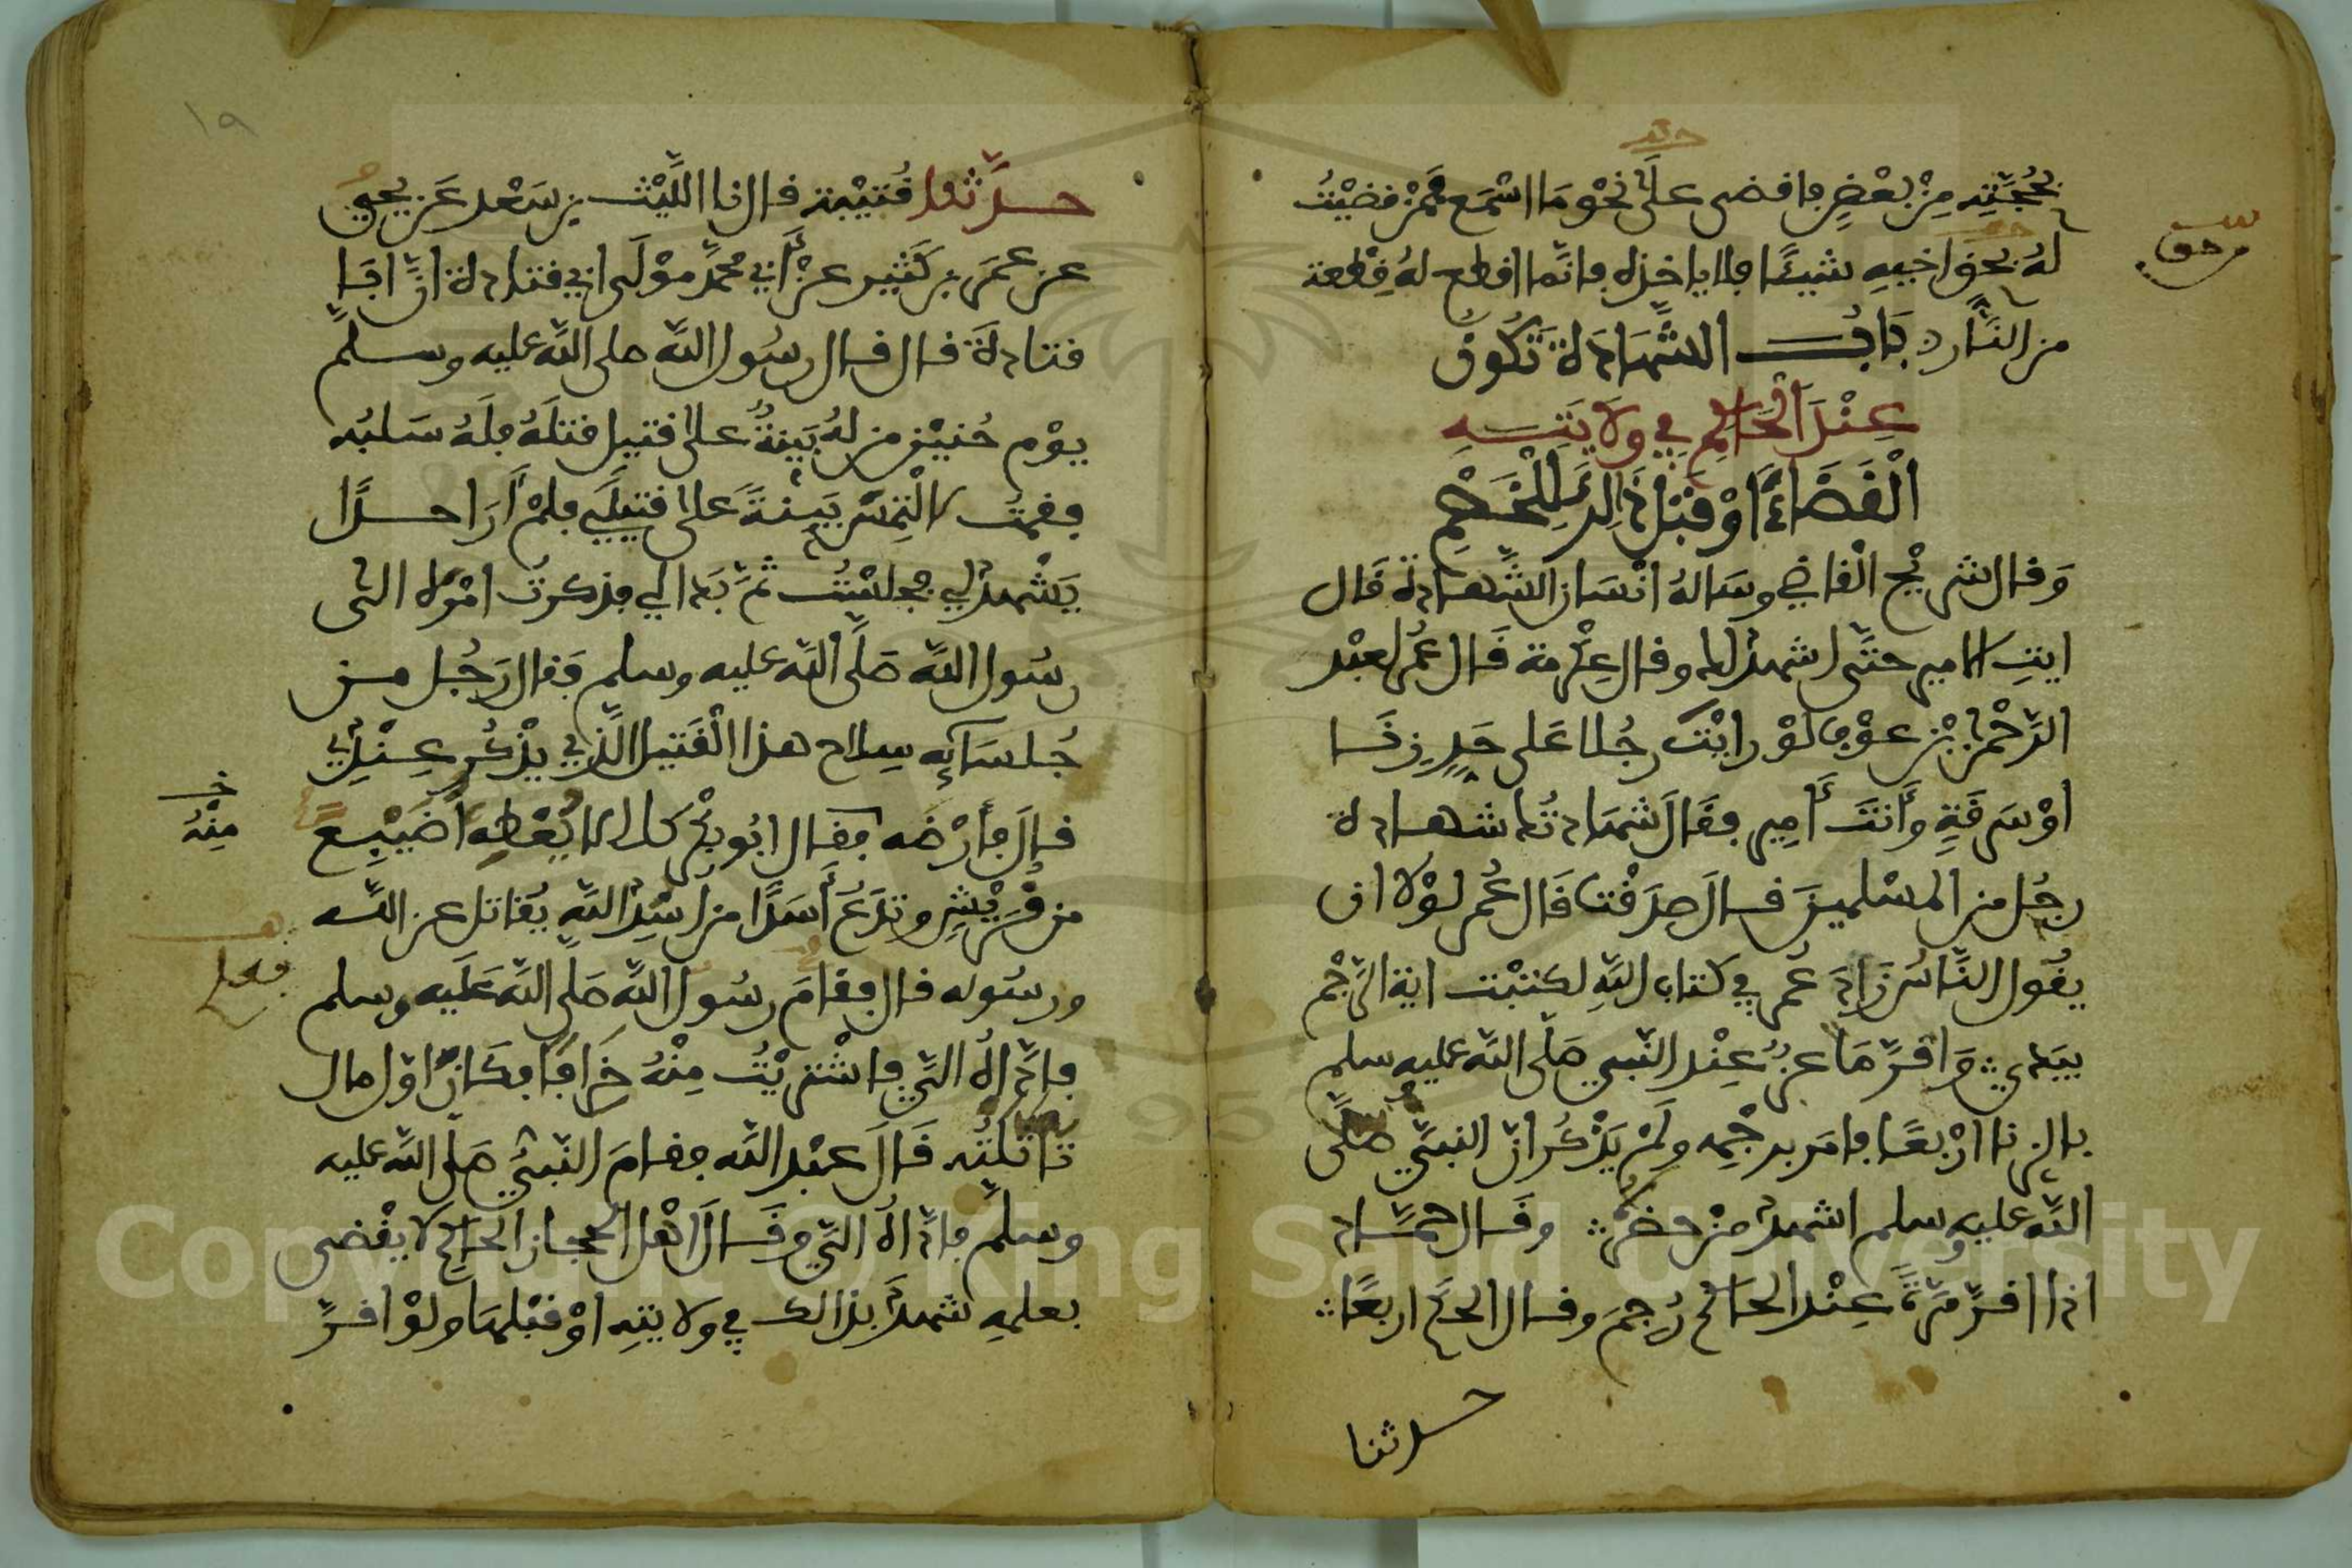 بحُجَّتِهِ مِنْ بَعْضٍ فاقضى علَى نَحْوِ مَا اسْمَع فمَنْ قضَيْتُ
لهُ بحق اخيهِ شيئًا فلا ياخذه فانَّما اقطع لهُ قِطعة
من النَّار بَابُ الشَّهَادَة تَكُونُ
عِنْدَ الْحَاكِمِ فِي وِلَايَتِهِ
الْقَضَاءَ اوْ قَبْلَ ذَلِكَ لِلْخَصْمِ
وَقال شريْح الْقاضِي وسَالهُ انْسَان الشَّهادة قَال
ايتِ الامير حتَّى اشهد لك وقال عِكْرمة قَال عُمر لعبْد
الرَّحْمٰن بْن عوْف لوْ رايْتَ رجُلا عَلى حَدٍ زِنَا
اوْ سَرقَةٍ وَأنتَ أمِير فقَالَ شهَادتُك شهادة
رجُل من المسْلمينَ قال صدَقْت قَال عُمر لوْلا ان
يقُول النَّاسُ زَادَ عُمر في كتاب اللهِ لكتبْت اية الرَّجْم
بيَدي وَاقرَّ مَاعز عِنْد النَّبي صَلى اللَّه عليه وسلم
بالزنا ارْبعًا فامَر برجْمِه ولَمْ يَذْكُر انّ النبيَّ صلَّى
اللَّه عليهِ وسلم اشهد منْ حضرهُ وقَال حمَّاد
اذا اقرَّ مَرَّةً عِنْد الحَاكم رُجمَ وقال الحكَم اربعًا
حدثنا
س
فرحق
١٩
حدَّثنا قُتيْبة قال نا اللَّيْث بن سَعْد عَن يحيى
عن عمَر بن كَثِير عنْ أبي محمَّد موْلَى ابي قتادة انَّ ابَا
قتادةَ قال قال رسُول اللَّه صلى اللَّه عليه وسلم
يوْم حُنيْن من لهُ بيّنةٌ على قتيل قتلَهُ فلَهُ سَلبُه
فقمت لالْتمِسَ بَيّنةً على قتيلي فلمْ أرَ احدًا
يَشْهد لي فجلسْتُ ثمَّ بَدا لي فذكرتُ امْرَهُ الى
رسُول اللَّه صَلَّى اللَّه عليه وسلم فقال رَجُل من
جُلسَائِه سِلاح هذا الْقَتيل الَّذي يذْكُر عِنْدِي
قالَ فأرْضه فقال ابُو بكْر كلا لا يُعْطِه أضَيْبِعَ
من قُرَيْشٍ وتدَعُ أسَدًا من اسْدِ اللَّهِ يُقاتل عن اللَّه
ورسُوله قال فقامَ رسُول اللَّه صَلى اللَّه عَلَيه وسلم
فادَّاهُ الَيَّ فاشْتريْتُ مِنْهُ خرَافًا فكَانَ اوّل مال
تاثَّلتُه قَالَ عبْد اللَّه فقامَ النَّبيُّ صَلى اللَّه عليه
وسلم فادَّاهُ الَيَّ وقَالَ اهْل الحجاز الحَاكم لا يقْضى
بعلمِهِ شهدَ بذالك في ولايتِهِ اوْ قبْلهَا ولوْ اقرَّ
خ
مِنْهُ
فعلم